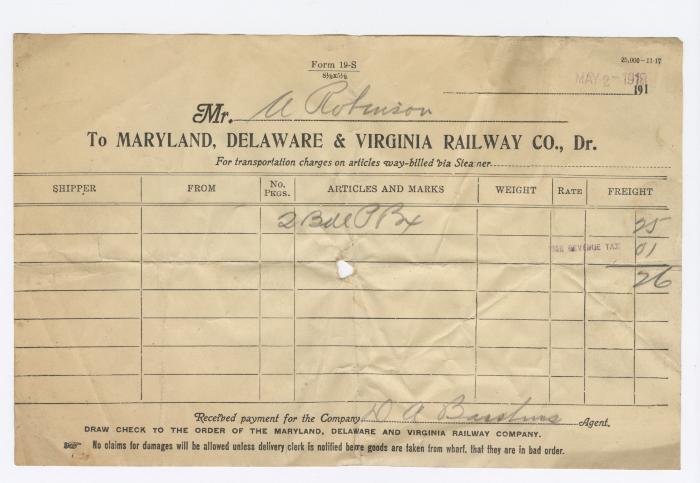 Form 19-S
8½x5½
25,000-11-17
MAY 2-1918
191
Mr. A Robinson
To MARYLAND, DELAWARE & VIRGINIA RAILWAY CO., Dr.
For transportation charges on articles way-billed via Steamer
SHIPPER FROM No. PKGS. ARTICLES AND MARKS WEIGHT RATE FREIGHT
2 Bdl P Bx 25
WAR REVENUE TAX 01
26
Received payment for the Company D A Agent.
DRAW CHECK TO THE ORDER OF THE MARYLAND, DELAWARE AND VIRGINIA RAILWAY COMPANY.
No claims for damages will be allowed unless delivery clerk is notified before goods are taken from wharf, that they are in bad order.